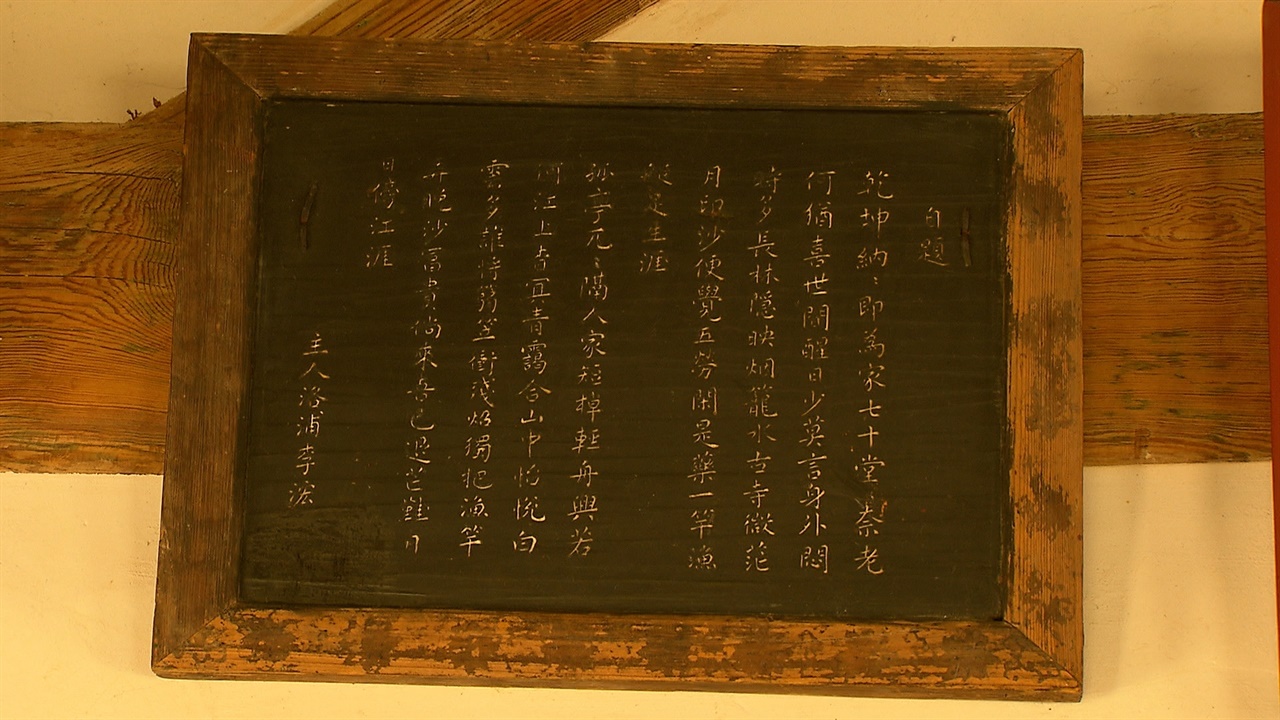 自題
乾坤納〻即為家七十堂奈老
何猶喜世間醒日少莫言身外悶
時多長林隱映烟籠水古寺微茫
月印沙便覺五勞閑是藥一竿漁
是生涯
孤亭兀〻隔人家短棹輕舟興若
何江上奇冥青靄合山中怳惚白
雲多誰將坐衝殘焰獨把漁竿
弄晚沙富貴倘來吾已過芒鞋日
日傍江涯
主人洛浦李浤